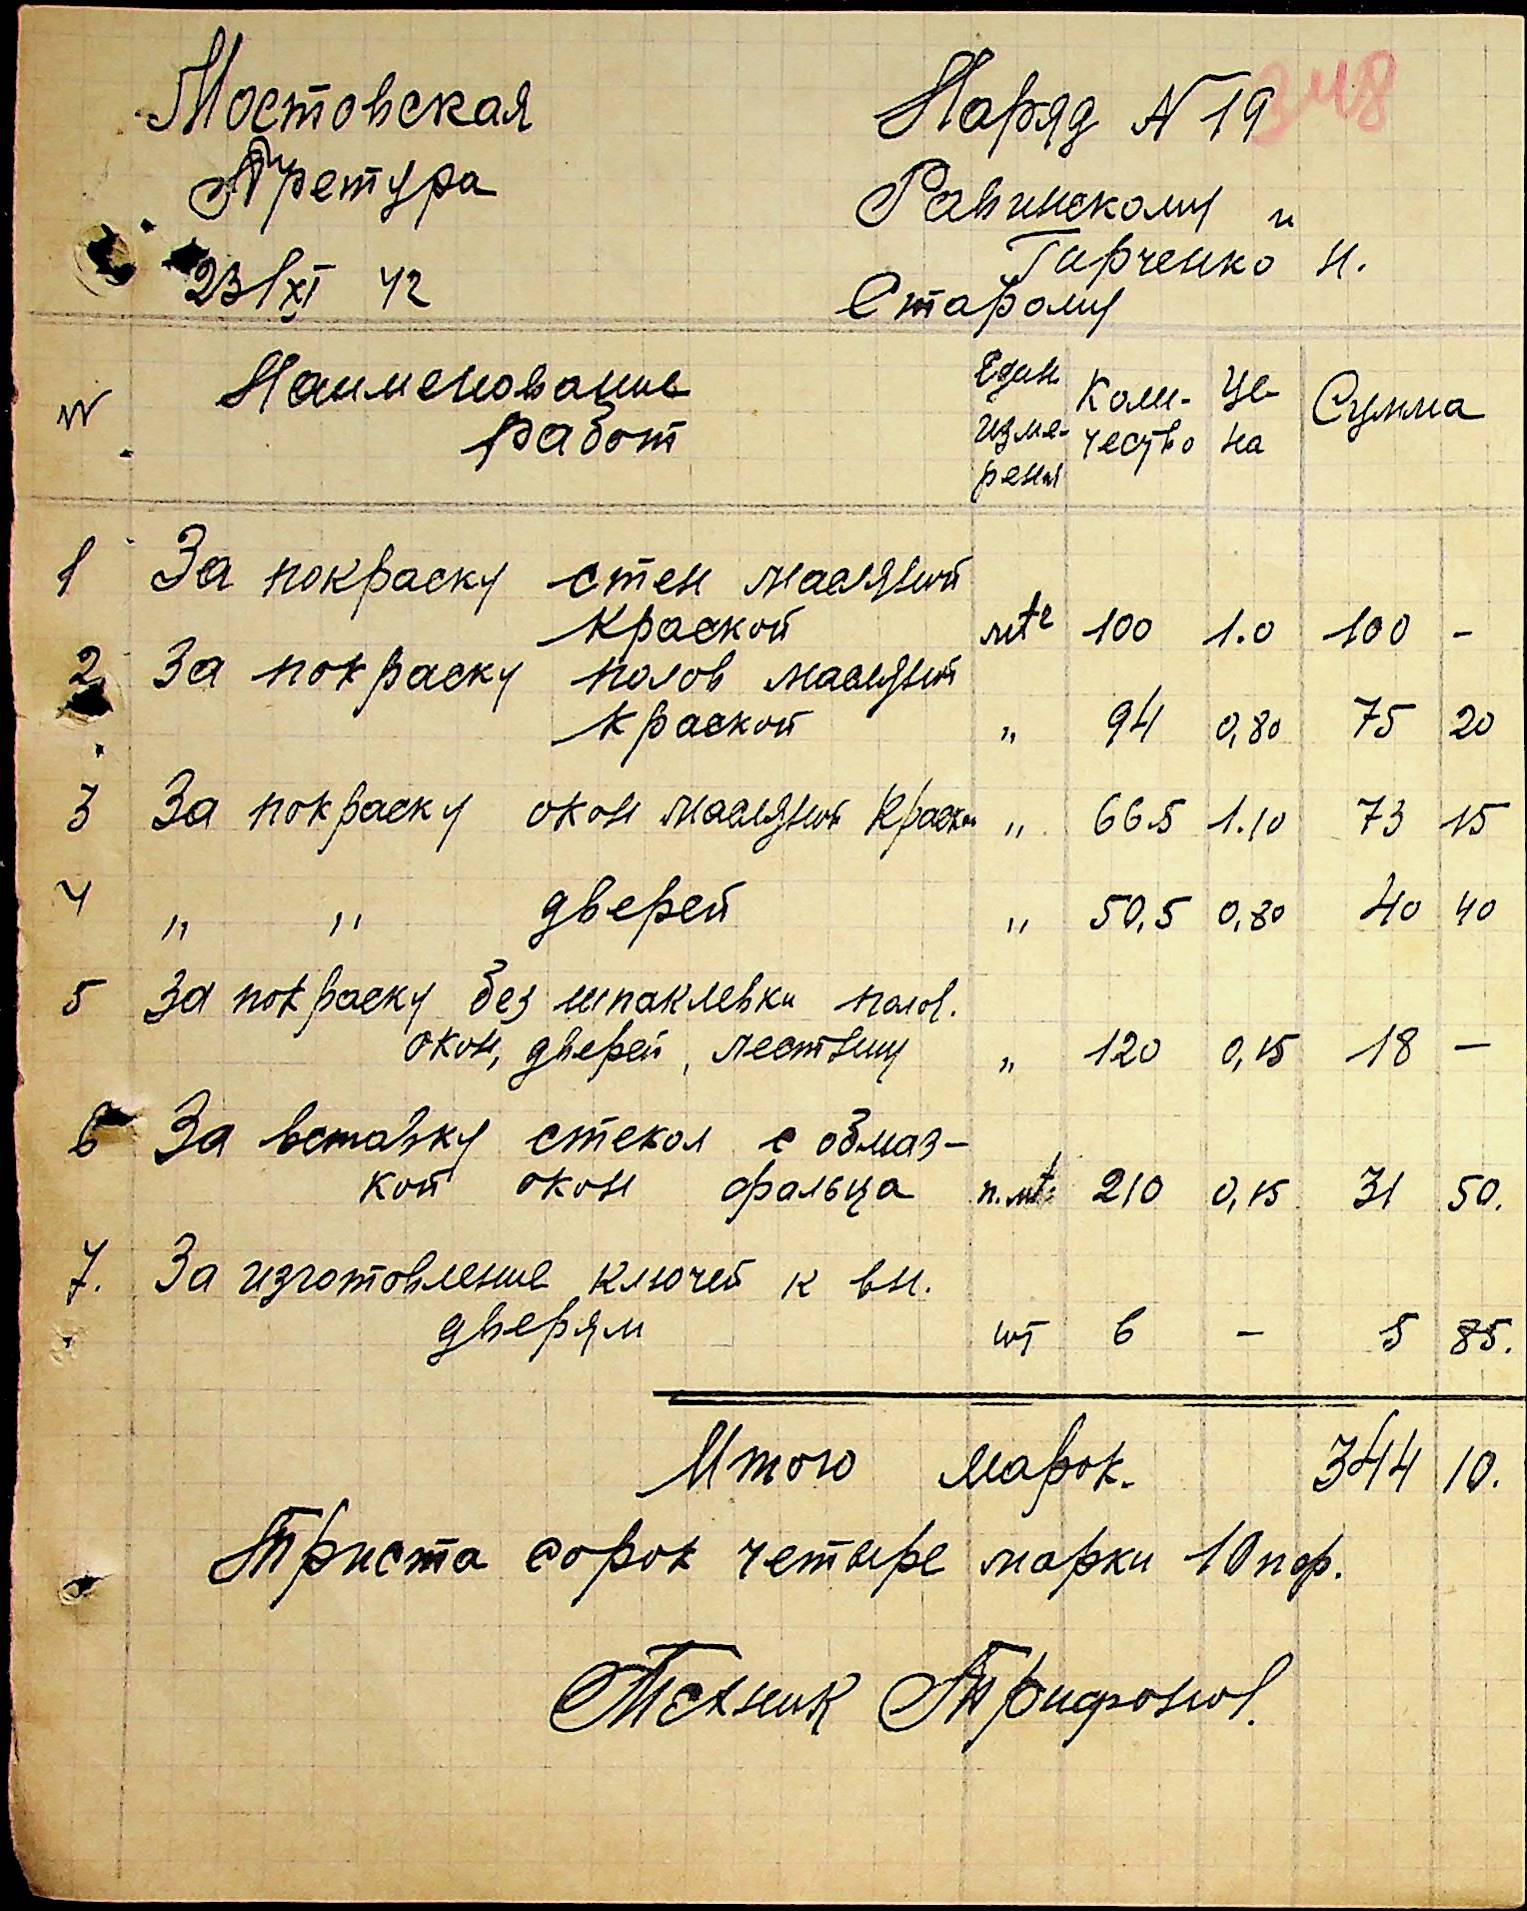 Мостовская
Претура
23/XI 42
Наряд N 19
348
Равинскому и
Гирченко Н.
Старому
N Наименование работ Един. изме-рения Коли-чество Це-на Сумма
1 За покраску стен масляной
краской мt² 100 1.0 100 –
2 За покраску полов масляной
краской " 94 0,80 75 20
3 За покраску окон масляной краской " 66.5 1.10 73 15
4 " " дверей " 50,5 0,80 40 40
5 За покраску без шпаклевки полов.
окон, дверей, лестниц " 120 0,15 18 –
6 За вставку стекол с обмаз-
кой окон фальца п.мt. 210 0,15 31 50.
7. За изготовление ключей к вн.
дверям шт 6 – 5 85.
Итого марок. 344 10.
Триста сорок четыре марки 10 пф.
Техник Трифонов.